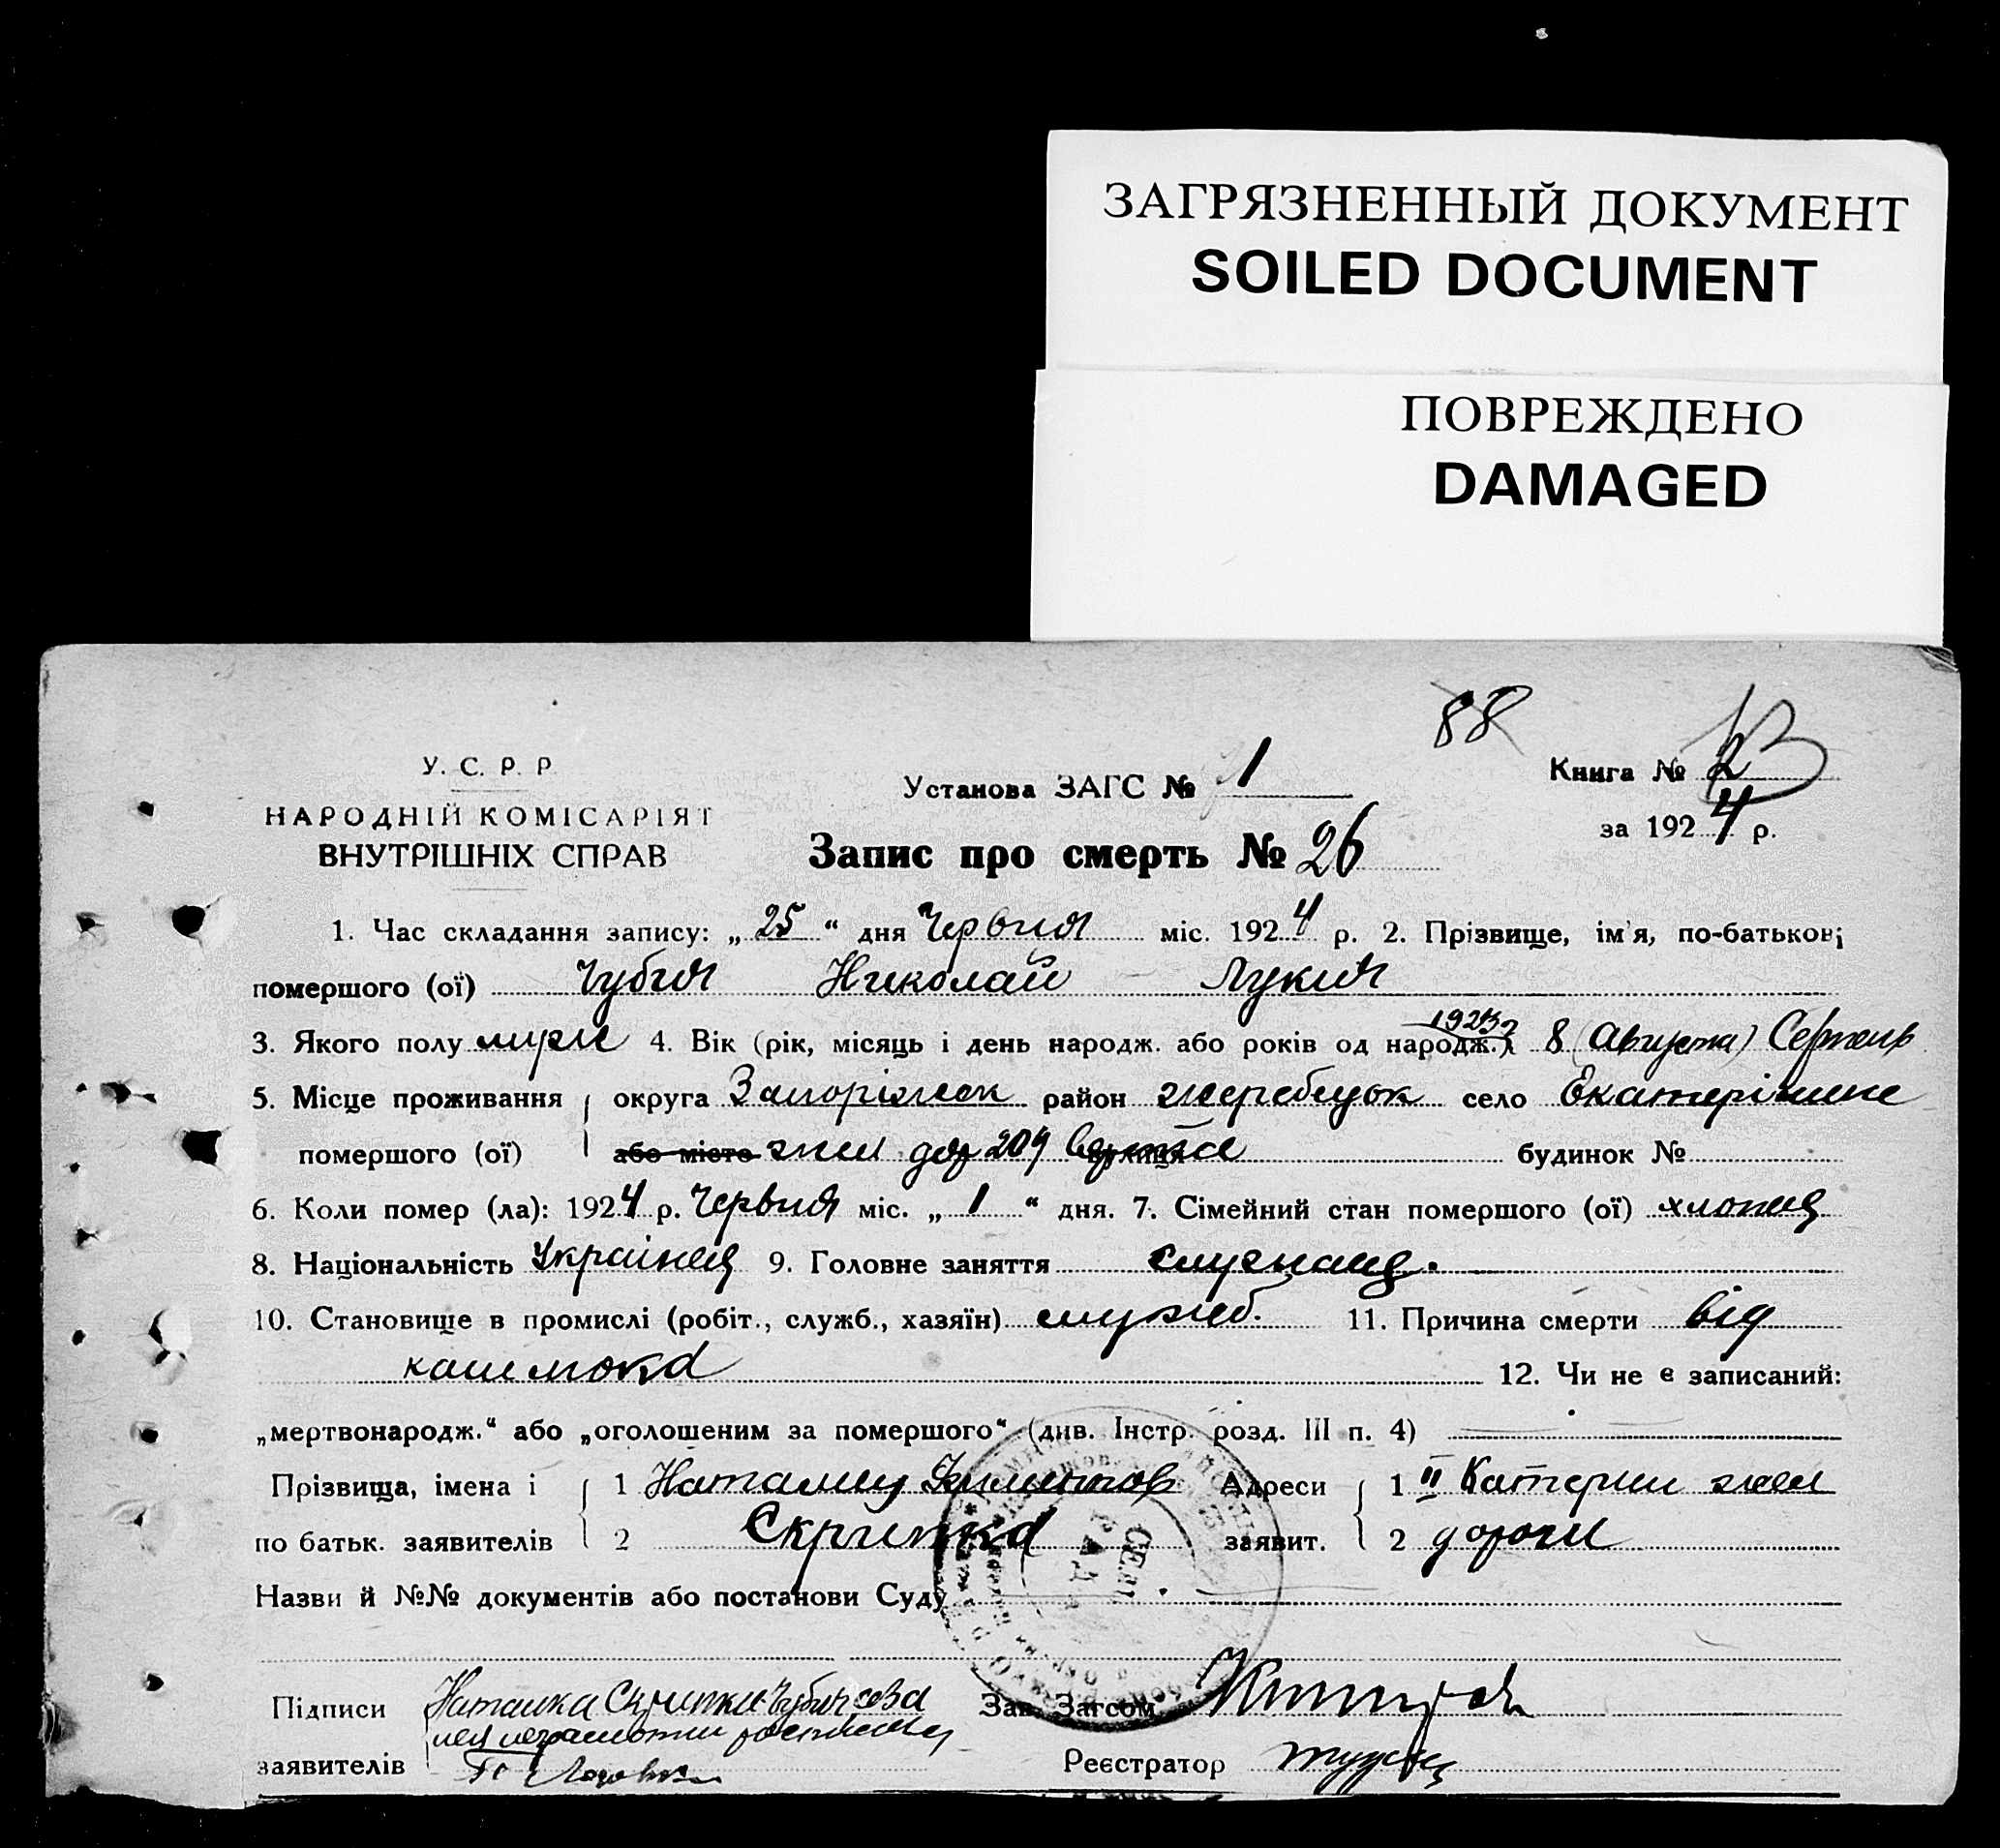 ЗАГРЯЗНЕННЫЙ ДОКУМЕНТ
SOILED DOCUMENT
ПОВРЕЖДЕНО
DAMAGED
88
У. С. Р. Р.
НАРОДНІЙ КОМІСАРІЯТ
ВНУТРІШНІХ СПРАВ
Установа ЗАГС № 1
Книга № 2
за 1924 р.
Запис про смерть № 26
1. Час складання запису: „25“ дня Червня міс. 1924 р. 2. Прізвище, ім'я, по-батькові
помершого (ої) Чубин Николай Лукич
3. Якого полу муж 4. Вік (рік, місяць і день народж. або років од народж.) 8 (Августа) Серпень
5. Місце проживання округа Запоріжск район жеребецьк село Екатерінине
помершого (ої) або місто жел дор 204 верста вулиця будинок №
6. Коли помер (ла): 1924 р. Червня міс. „1“ дня. 7. Сімейний стан помершого (ої) хлопец
8. Національність Українец 9. Головне заняття служащ.
10. Становище в промислі (робіт., служб., хазяїн) служб. 11. Причина смерти від
кашлюка 12. Чи не є записаний:
„мертвонародж.“ або „оголошеним за помершого“ (див. Інстр. розд. III п. 4)
Прізвища, імена і 1 Адреси 1 II Катерин жел
по батьк. заявителів 2 Скрипка заявит. 2 дороги
Назви й №№ документів або постанови Суду
Підписи Наташка Скрипка Зав. Загсом
заявителів Реєстратор